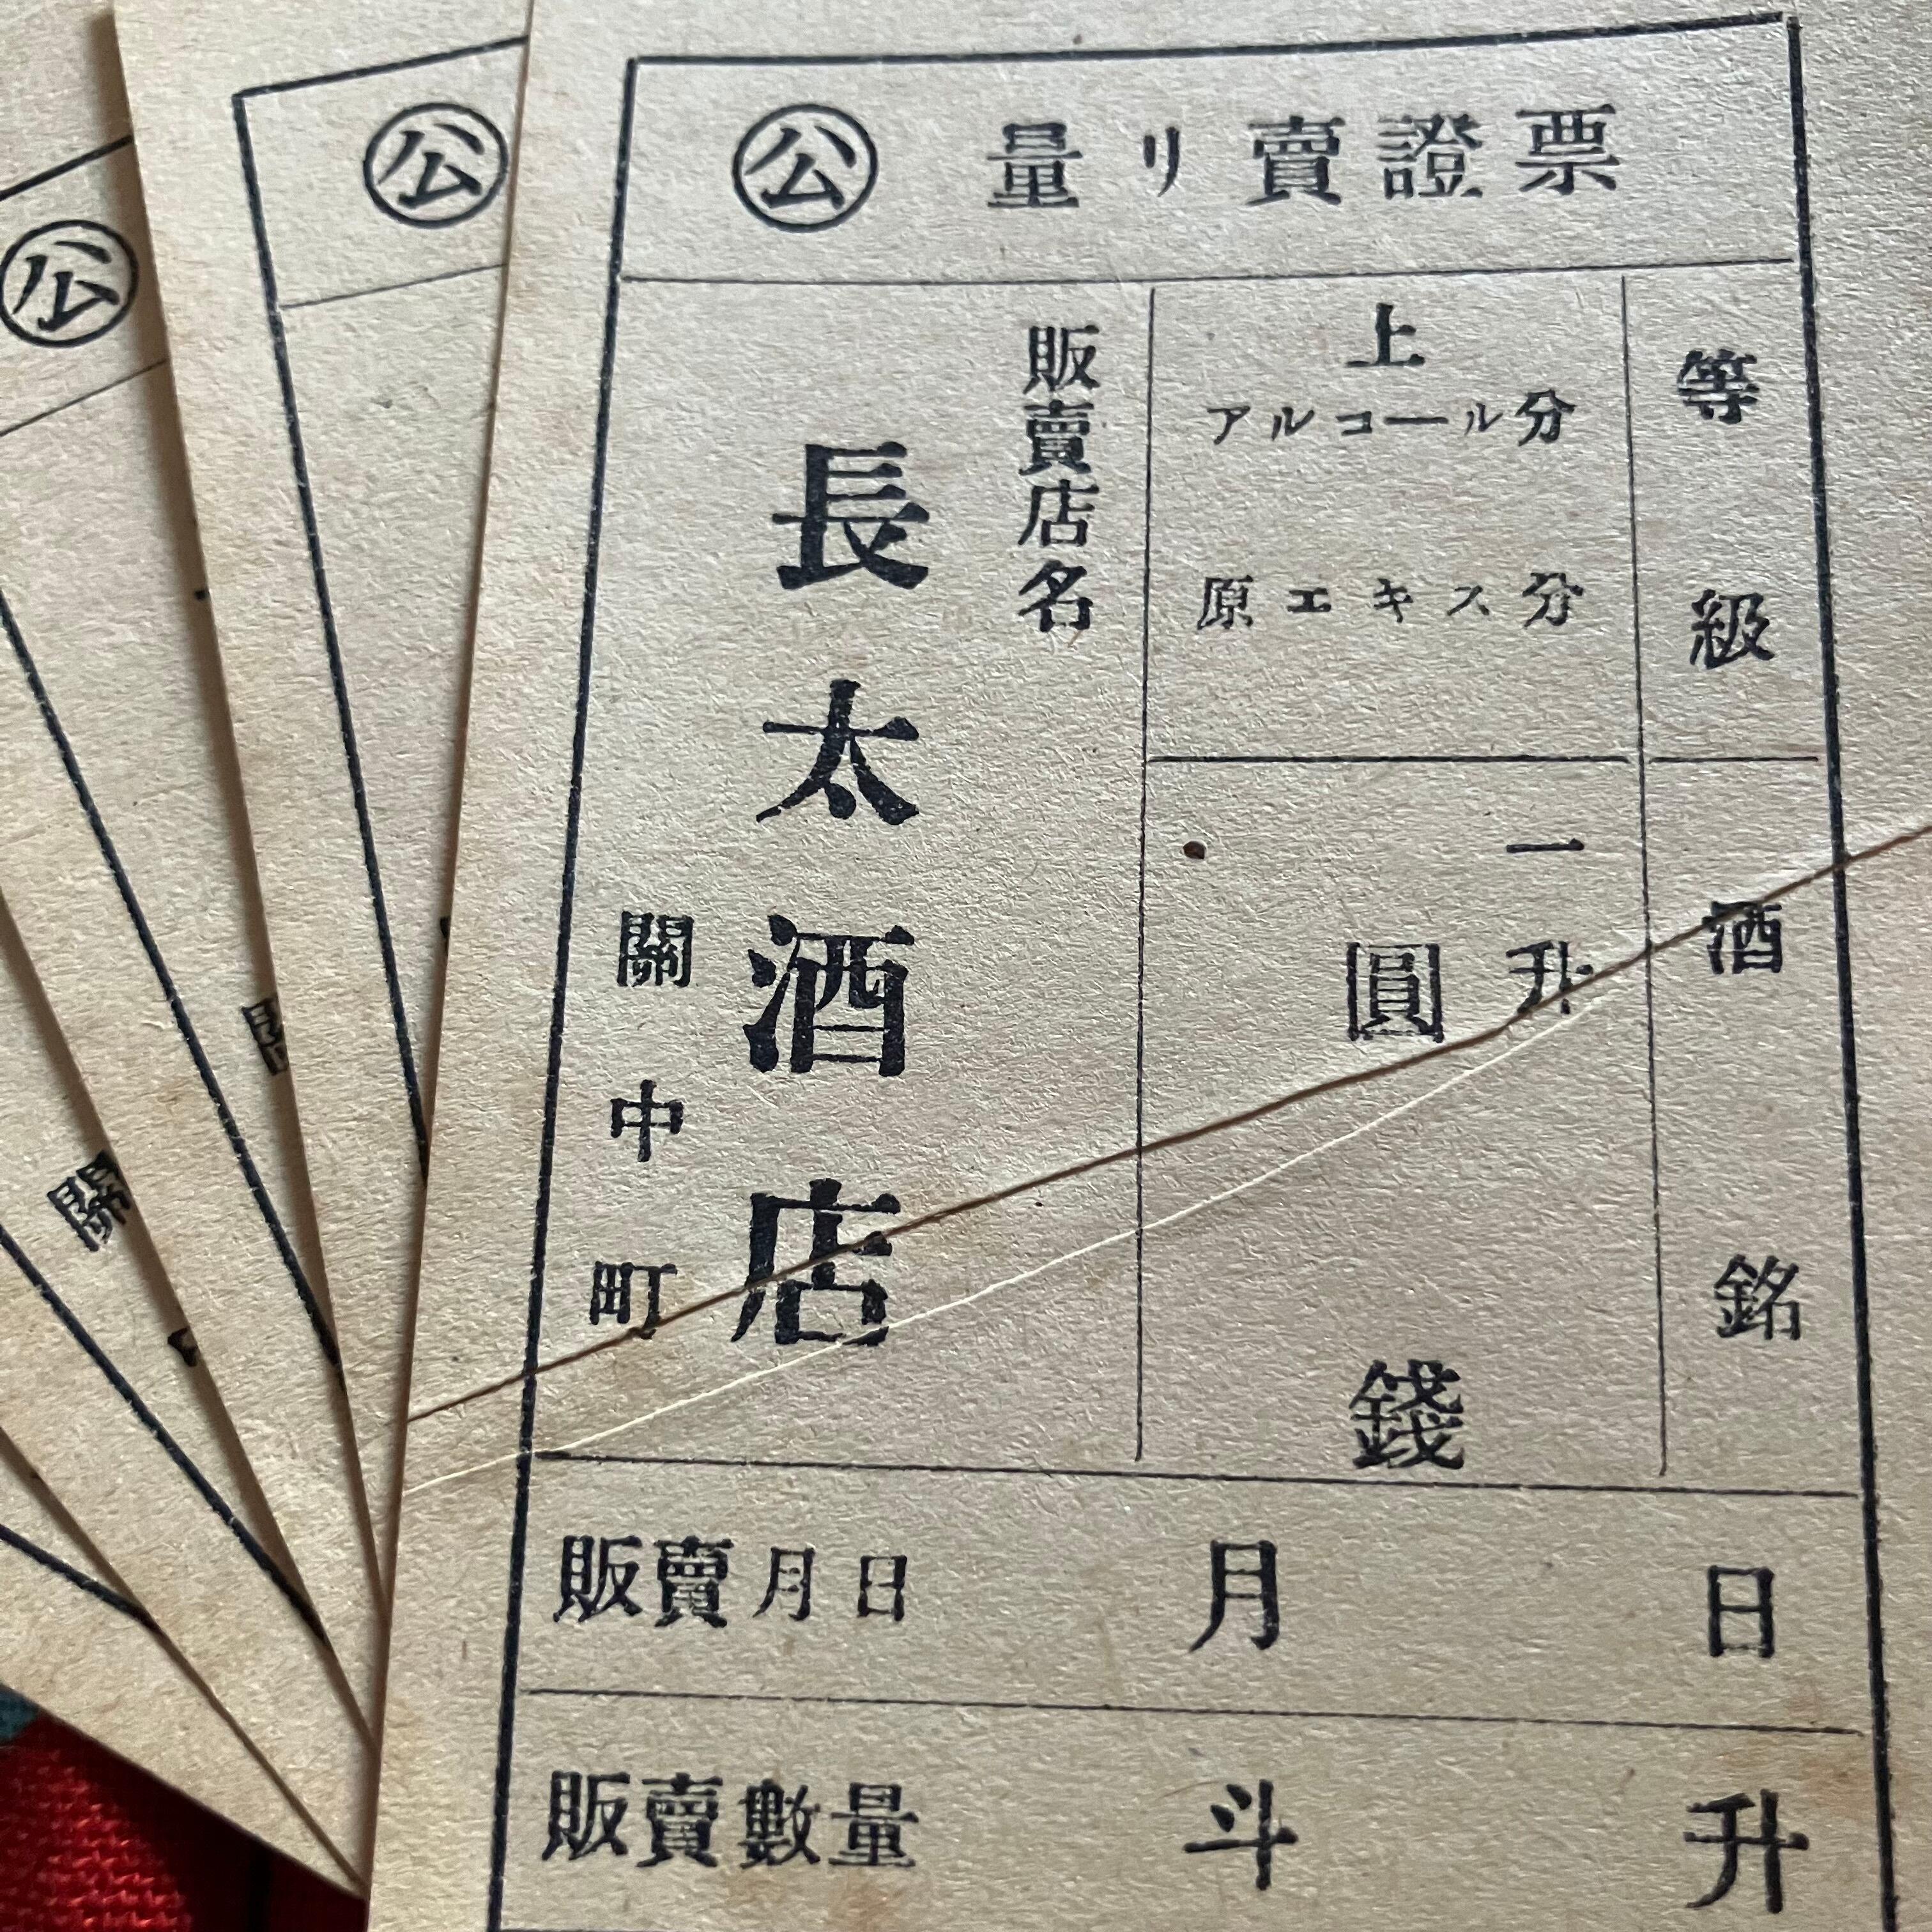 公 量リ賣證票
等級
上
アルコール分
原エキス分
酒銘
一升
圓
錢
販賣店名
長太酒店
關中町
販賣月日 月 日
販賣數量 斗 升
公
關
公
關